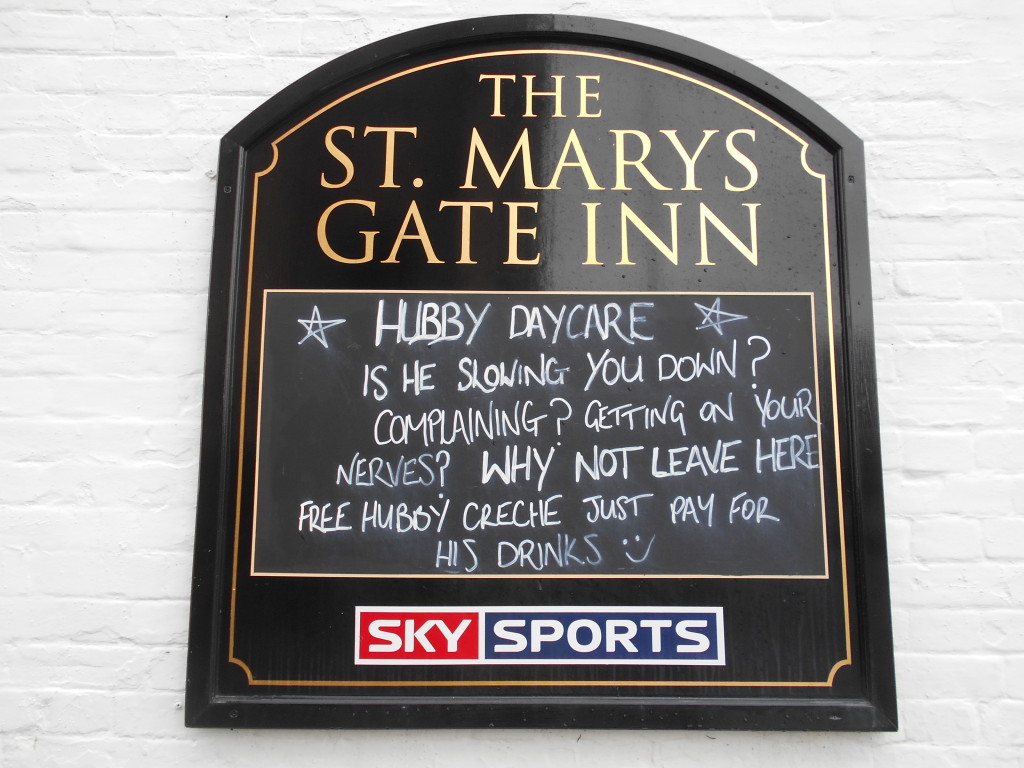 THE
ST. MARYS
GATE INN
HUBBY DAYCARE
IS HE SLOWING YOU DOWN?
COMPLAINING? GETTING ON YOUR
NERVES? WHY NOT LEAVE HERE
FREE HUBBY CRECHE JUST PAY FOR
HIS DRINKS :)
SKY SPORTS